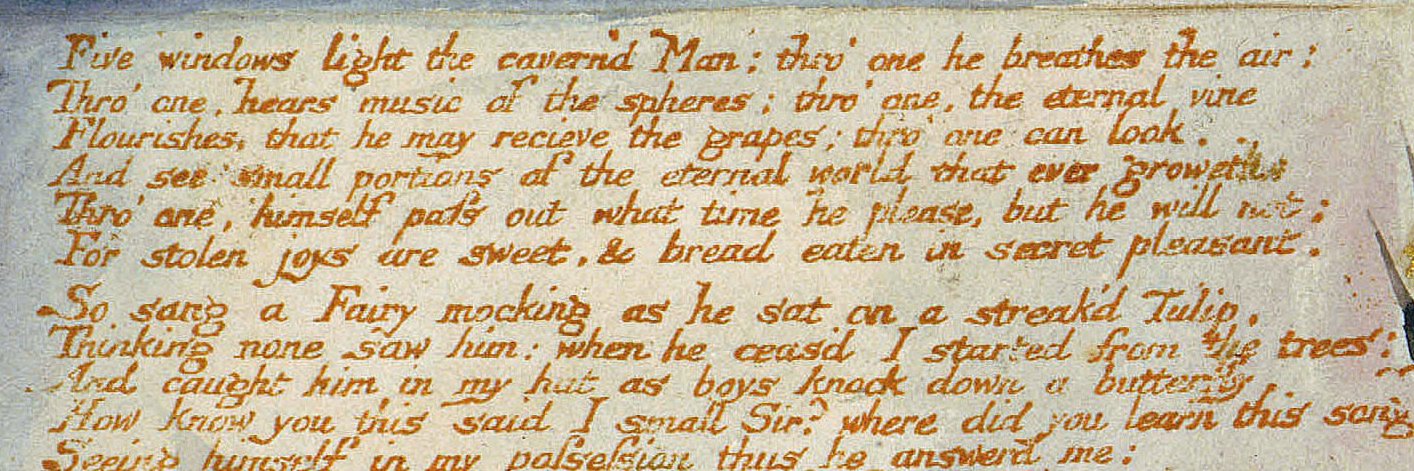 Five windows light the cavern'd Man; thro' one he breathes the air;
Thro' one, hears music of the spheres; thro' one, the eternal vine
Flourishes, that he may recieve the grapes; thro' one can look.
And see small portions of the eternal world that ever groweth;
Thro' one, himself pass out what time he please, but he will not;
For stolen joys are sweet, & bread eaten in secret pleasant.
So sang a Fairy mocking as he sat on a streak'd Tulip,
Thinking none saw him: when he ceas'd I started from the trees:
And caught him in my hat as boys knock down a butterfly.
How know you this said I small Sir? where did you learn this song?
Seeing himself in my possession thus he answer'd me: